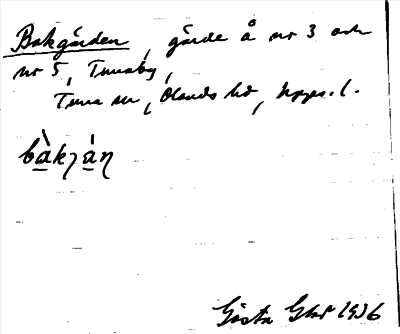 Bakgården, gärde å nr 3 och
nr 5, Tunaby,
Tuna sn, Olands hd, Upps. l.
bàkɟáꞑ
Gösta 1936